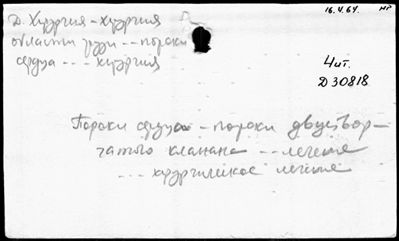 16.V.64. НР
Д. Хирургия - хирургия
области груди -- пороки
сердца -- - хирургия
Чит.
Д30818
Пороки сердца - пороки двуствор-
чатого клапана -- лечение
-- - хирургическое лечение